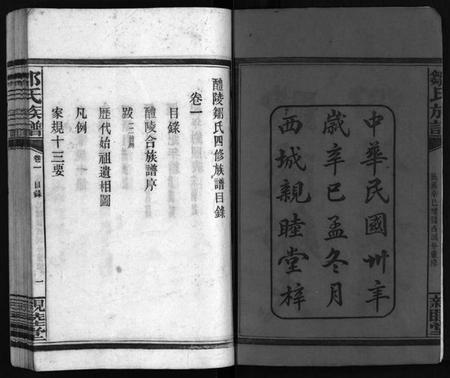 中華民國卅年
歲辛巳孟冬月
西城親睦堂梓
鄒氏族譜
親睦堂
醴陵鄒氏四修族譜目錄
卷一
目錄
醴陵合族譜序
跋
歷代始祖遺相圖
凡例
家規十三要
鄒氏族譜
卷一 目錄
一
親睦堂